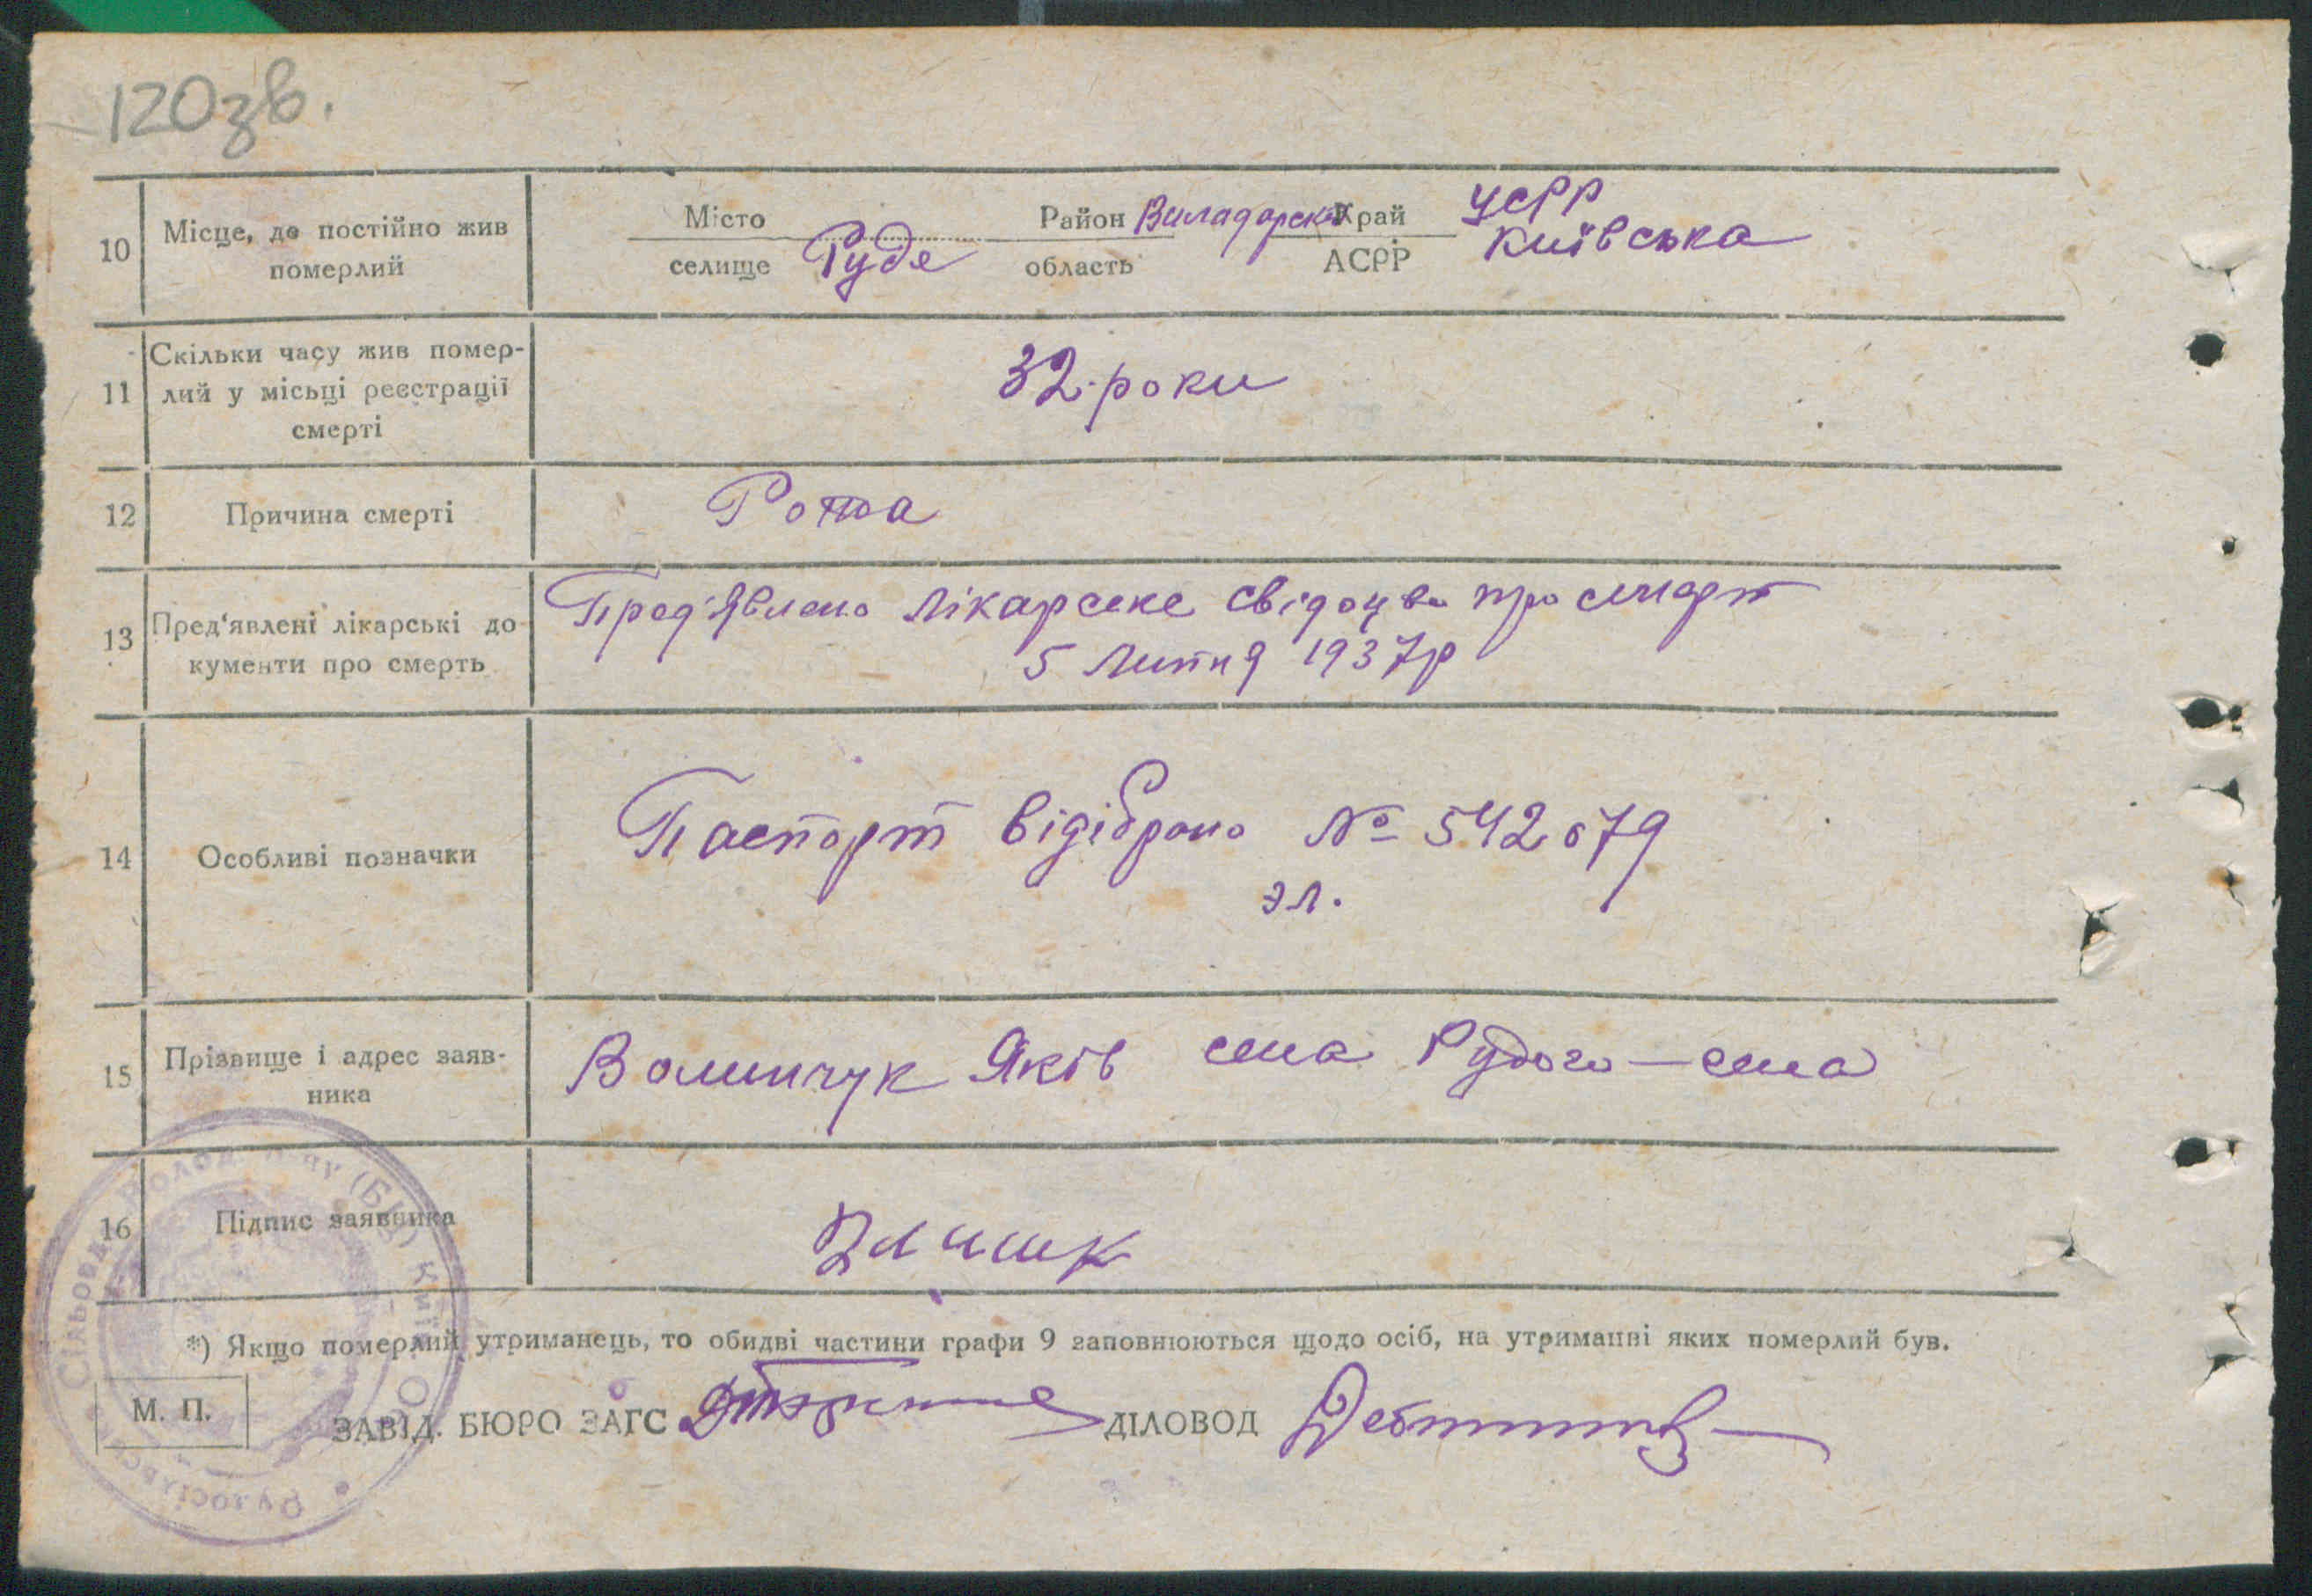 120зв.
10 Місце, де постійно жив померлий
Місто селище Руде Район область Виладарска Край АСРР УСРР Київська
11 Скільки часу жив помер-
лий у місьці реєстрації
смерті
32 роки
12 Причина смерті
Рота
13 Пред'явлені лікарські до
кументи про смерть
Пред'явлено лікарске свідоцво про смерт
5 Липня 1937р
14 Особливі позначки
Паспорт відібрано № 542679
эл.
15 Прізвище і адрес заяв-
ника
Волинчук Яків села Рудого-села
16 Підпис заявника
*) Якщо померлий утриманець, то обидві частини графи 9 заповнюються щодо осіб, на утриманні яких померлий був.
М. П.
ЗАВІД. БЮРО ЗАГС
ДІЛОВОД